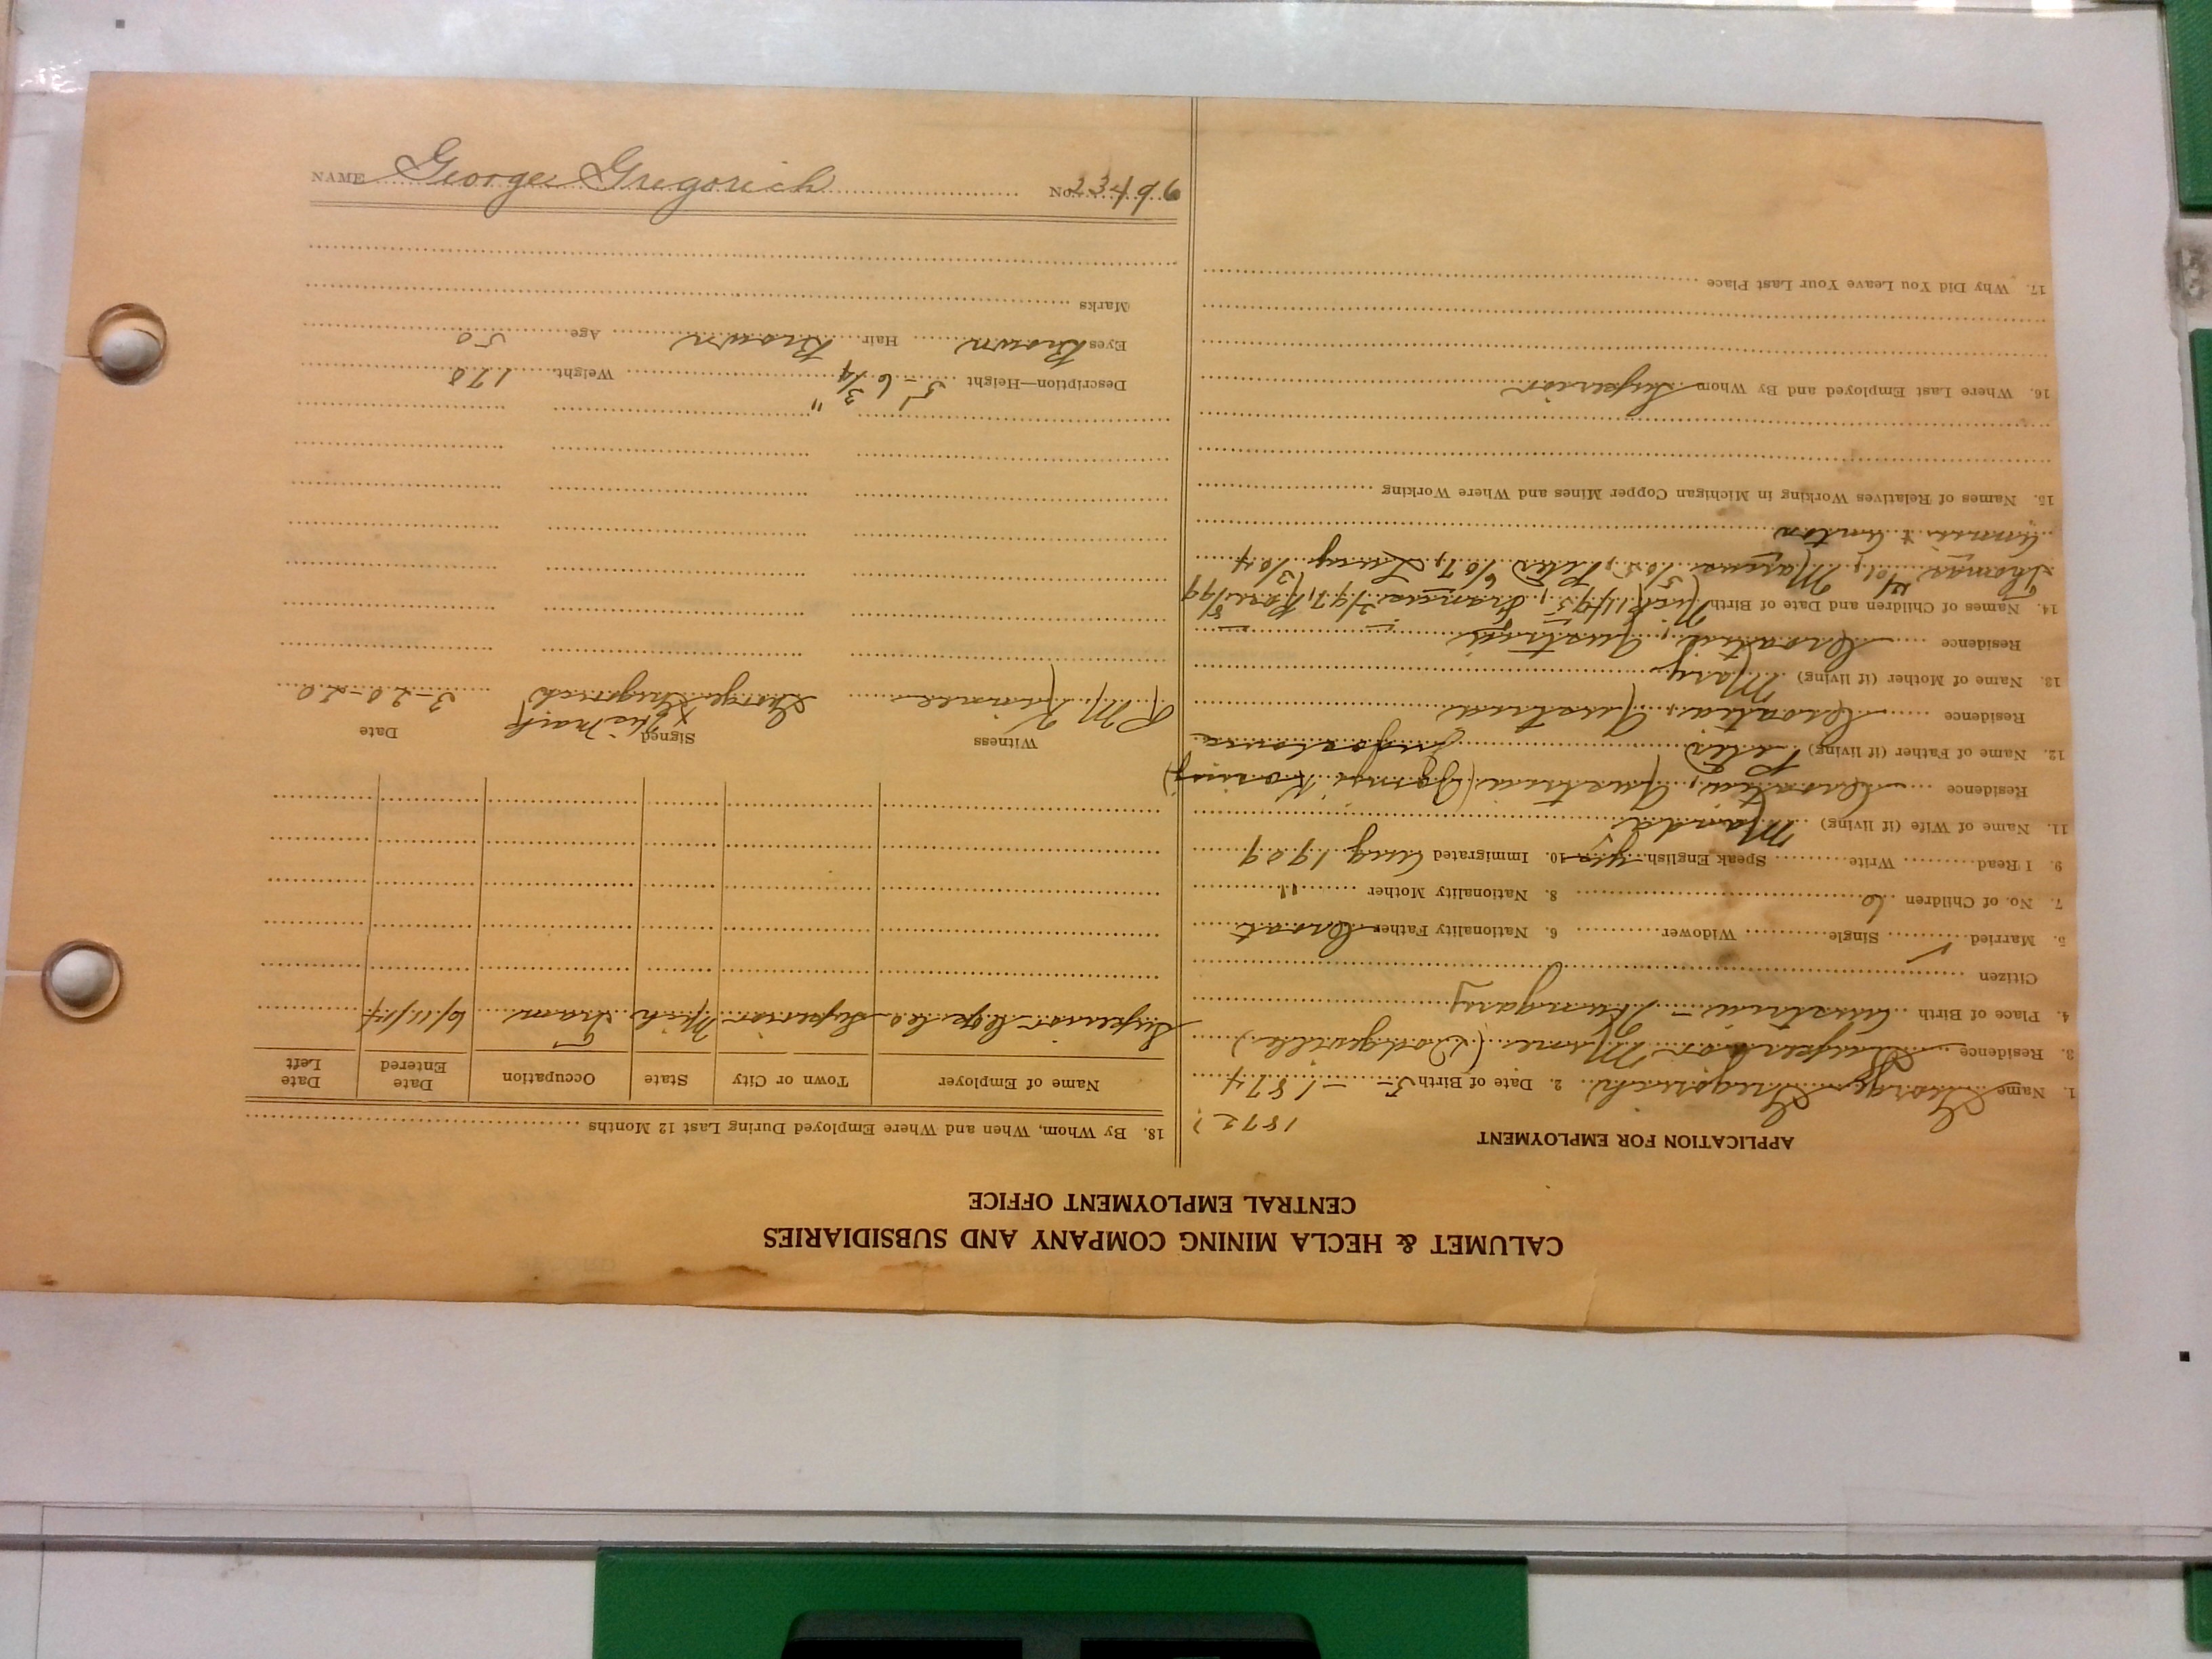 CALUMET & HECLA MINING COMPANY AND SUBSIDIARIES
CENTRAL EMPLOYMENT OFFICE
APPLICATION FOR EMPLOYMENT
1872?
1. Name George Gregorich 2. Date of Birth 5-1-1874
3. Residence Superior Mine (Dodgeville)
4. Place of Birth Austria-Hungary
Citizen
5. Married ✓ Single Widower 6. Nationality Father Croat
7. No. of Children 6 8. Nationality Mother "
9. I Read Write Speak English yes 10. Immigrated Aug 1909
11. Name of Wife (if living) Manda
Residence Croatia, Austria
12. Name of Father (if living) Peter
Residence Croatia, Austria
13. Name of Mother (if living) Mary
Residence Croatia, Austria
14. Names of Children and Date of Birth
Thomas 4/01, 6/07, 3/04
Annie & Anton
15. Names of Relatives Working in Michigan Copper Mines and Where Working
16. Where Last Employed and By Whom Superior
17. Why Did You Leave Your Last Place
18. By Whom, When and Where Employed During Last 12 Months
Name of Employer Town or City State Occupation Date Entered Date Left
Superior Cop Co Superior Mich Tram 6/11/14
Witness Signed Date
his mark
x
George Gregorich 3-20-20
Description—Height 5'-6 3/4" Weight 178
Eyes Brown Hair Brown Age 50
Marks
NAME George Gregorich NO. 23496